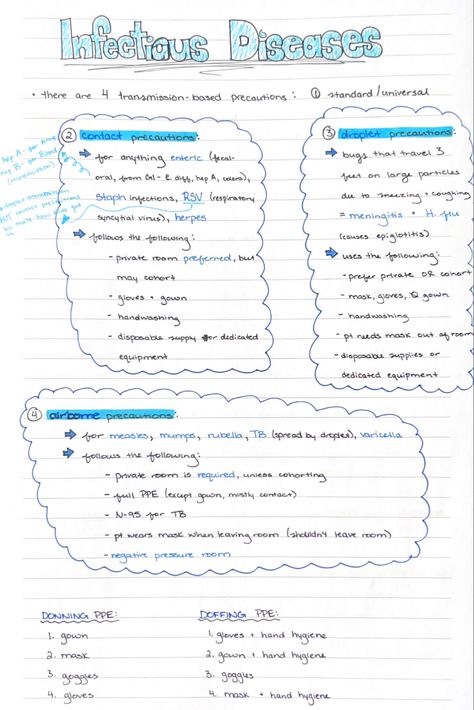 Infectious Diseases
• there are 4 transmission-based precautions: ① standard/universal
② contact precautions:
➔ for anything enteric (fecal-
oral, from GI - C. diff, hep A,
Staph infections, RSV (respiratory
syncytial virus), herpes
➔ follows the following:
- private room preferred, but
may cohort
- gloves + gown
- handwashing
- disposable supply or dedicated
equipment
hep A - for Anus
hep B - for Blood
③ droplet precautions:
➔ bugs that travel 3
feet on large particles
due to sneezing + coughing
= meningitis + H. flu
(causes epiglotitis)
➔ uses the following:
- prefer private OR cohort
- mask, gloves, gown
- handwashing
- pt needs mask out of room
- disposable supplies or
dedicated equipment
④ airborne precautions:
➔ for measles, mumps, rubella, TB (spread by droplet), varicella
➔ follows the following:
- private room is required, unless cohorting
- full PPE (except gown, mostly contact)
- N-95 for TB
- pt wears mask when leaving room (shouldn't leave room)
- negative pressure room
DONNING PPE:
1. gown
2. mask
3. goggles
4. gloves
DOFFING PPE:
1. gloves + hand hygiene
2. gown + hand hygiene
3. goggles
4. mask + hand hygiene